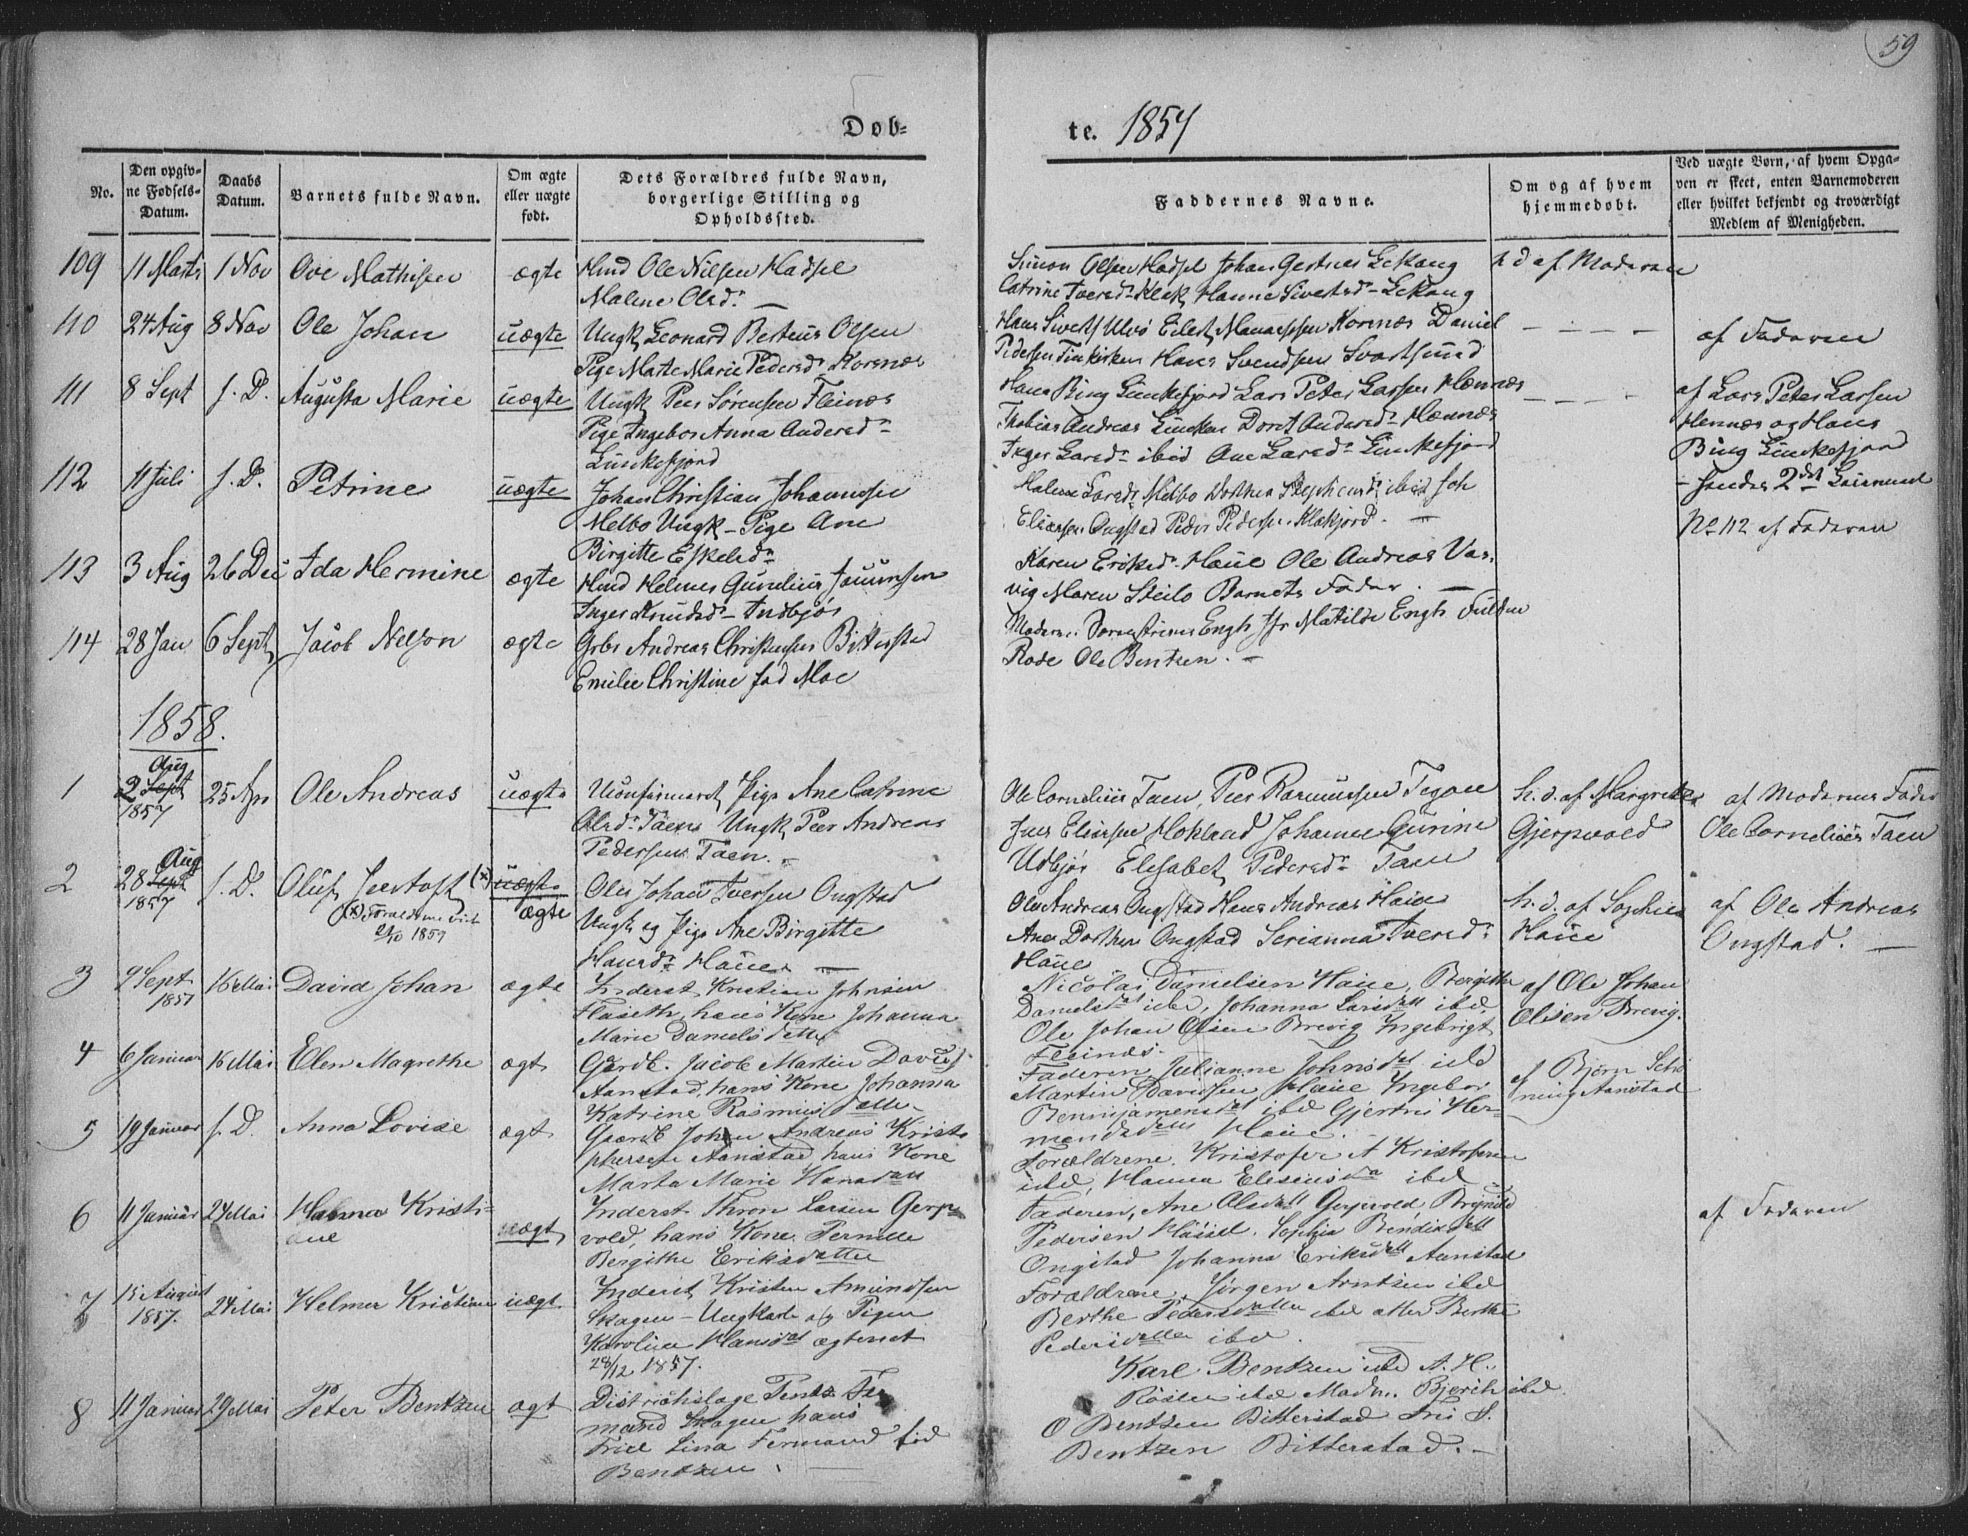 59
Døb=
te. 1857
No.
Den opgiv=
ne Fødsels=
Datum.
Daabs
Datum.
Barnets fulde Navn.
Om ægte
eller uægte
født.
Dets Forældres fulde Navn,
borgerlige Stilling og
Opholdssted.
Faddernes Navne.
Om og af hvem
hjemmedøbt.
Ved uægte Børn, af hvem Opga=
ven er skeet, enten Barnemoderen
eller hvilket bekjendt og troværdigt
Medlem af Menigheden.
109 11 Marts 1 Nov Ove Mathisen ægte Hmd Ole Nilsen Hadsel
Malene Olsdr. —
Simon Olsen Hadsel Johan
Catrine Hanne
h d af Moderen
110 24 Aug 8 Nov Ole Johan uægte Ungk Leonard Berteus Olsen
Pige Marte Marie Pedersdr Korsnæs
Hans Ulvø Korsnæs Daniel
Pedersen Hans Svendsen Svartsund
af Faderen
111 8 Sept s. D. Augusta Marie uægte Ungk Peer Sørensen Fleines
Pige Ingebor Anna Andersdr
Lunkefjord
Hans Bing Lunkefjord Lars Peter Larsen Hennæs
Thobias Andreas Dort Andersdr Hennæs
Inger Larsdr ibid Ane Larsdr Lunkefjord
af Lars Peter Larsen
Hennæs og Hans
Bing Lunkefjord
112 11 Juli s. D. Petrine uægte Johan Christian Johannsen
Melbo Ungk – Pige Ane
Birgitte Eskelsdr
Malene Larsdr Melbo Dorthea ibid Joh
Eliassen Ongstad Peder Pedersen
No 112 af Faderen
113 3 Aug 26 Dec Ida Hermine ægte Hmd Helmer Gunelius
Inger Knudsdr Indbjør
Karen Eriksdr Haue Ole Andreas Var
vig Maren Steilo Barnets Fader. —
114 28 Jan 6 Sept Jacob Nelson ægte Grbr Andreas Christensen Bitterstad
Emilie Christine fød Moe
Moderen Engh Jfr Matilde Engh
Rode Ole Bentzen. —
1858.
1 Aug
2 Sept
1857
25 Apr Ole Andreas uægte Uconfirmeret Pige Ane Catrine
Olsdr Taen Ungk Peer Andreas
Pedersen Taen. –
Ole Cornelius Taen, Peer Rasmussen
Jens Johanne Gurine
Udbjør Elisabet Pedersdr Taen
h. d. af Margrethe
Gjerpvold
af Moderens Fader
Ole Cornelius Taen
2 Aug
28 Sept
1857
s. D. Oluf (x) uægte
ægte
(x) Forældrene
1859
Ole Johan Iversen Ongstad
Ungk og Pige Ane Birgitte
Hansdr Haue. —
Ole Andreas Ongstad Hans Andreas Haue
Ane Dorthea Ongstad Serianna Iversdr
Haue
h. d. af Sophie
Haue
af Ole Andreas
Ongstad. —
3 9 Sept
1857
16 Mai David Johan ægte Inderst Kristian Johnsen
Flaseth, hans Kone Johanna
Marie Danielsdatter
Nicolai Danielsen Haue, Bergithe
Danielsdat ibd, Johanna Larsdatt ibd,
Ole Johan Olsen Brevig Ingebrigt
Fleinæs.
af Ole Johan
Olsen Brevig.
4 6 Januar 16 Mai Elen Magrethe ægt Gårdb. Jacob Martin Davids.
Aanstad, hans Kone Johanna
Katrine Rasmusdatter
Faderen, Julianne Johnsdat ibd
Martin Davidsen Haue Ingebor
Benninjamensdat ibd Gjertru Her-
mandsdatt Haue.
af Bjørn Schø
ning Aanstad
5 19 Januar s. D. Anna Lovise ægt Gaardb Johan Andreas Kristo
phersen Aanstad hans Kone
Marta Marie Hansdatt
Forældrene. Kristofer A Kristofersen
ibd, Hanna Eliseusda ibd
6 11 Januar 24 Mai Hanna Kristi-
ane
uægt Inderst Thron Larsen Gerp
vold, hans Kone Pernille
Bergithe Eriksdatter
Faderen, Ane Olsdatt Gerpvold Brynild
Pedersen Hadsel. Sophia Bendixdatt
Ongstad Johanna Eriksdatt Aanstad
af Faderen
7 15 August
1857.
24 Mai Helmer Kristian uægt Inderst Kristen Amundsen
Skagen – Ungkarl og Pigen
Karoline Hansdat ægteviet
28/12 1857.
Forældrene, Jørgen Arntzen ibd
Berthe Pedersdatter ibd atter Berthe
Pedersdatter ibd.
8 11 Januar 29 Mai Peter Bentzen ægt Distriktslæge
mand Skagen hans
Frue Lina Fermand fød
Bentzen. —
Karl Bentzen ibd A. H.
ibd Madm. ibd
O Bentzen Bitterstad
Bentzen Bitterstad. –